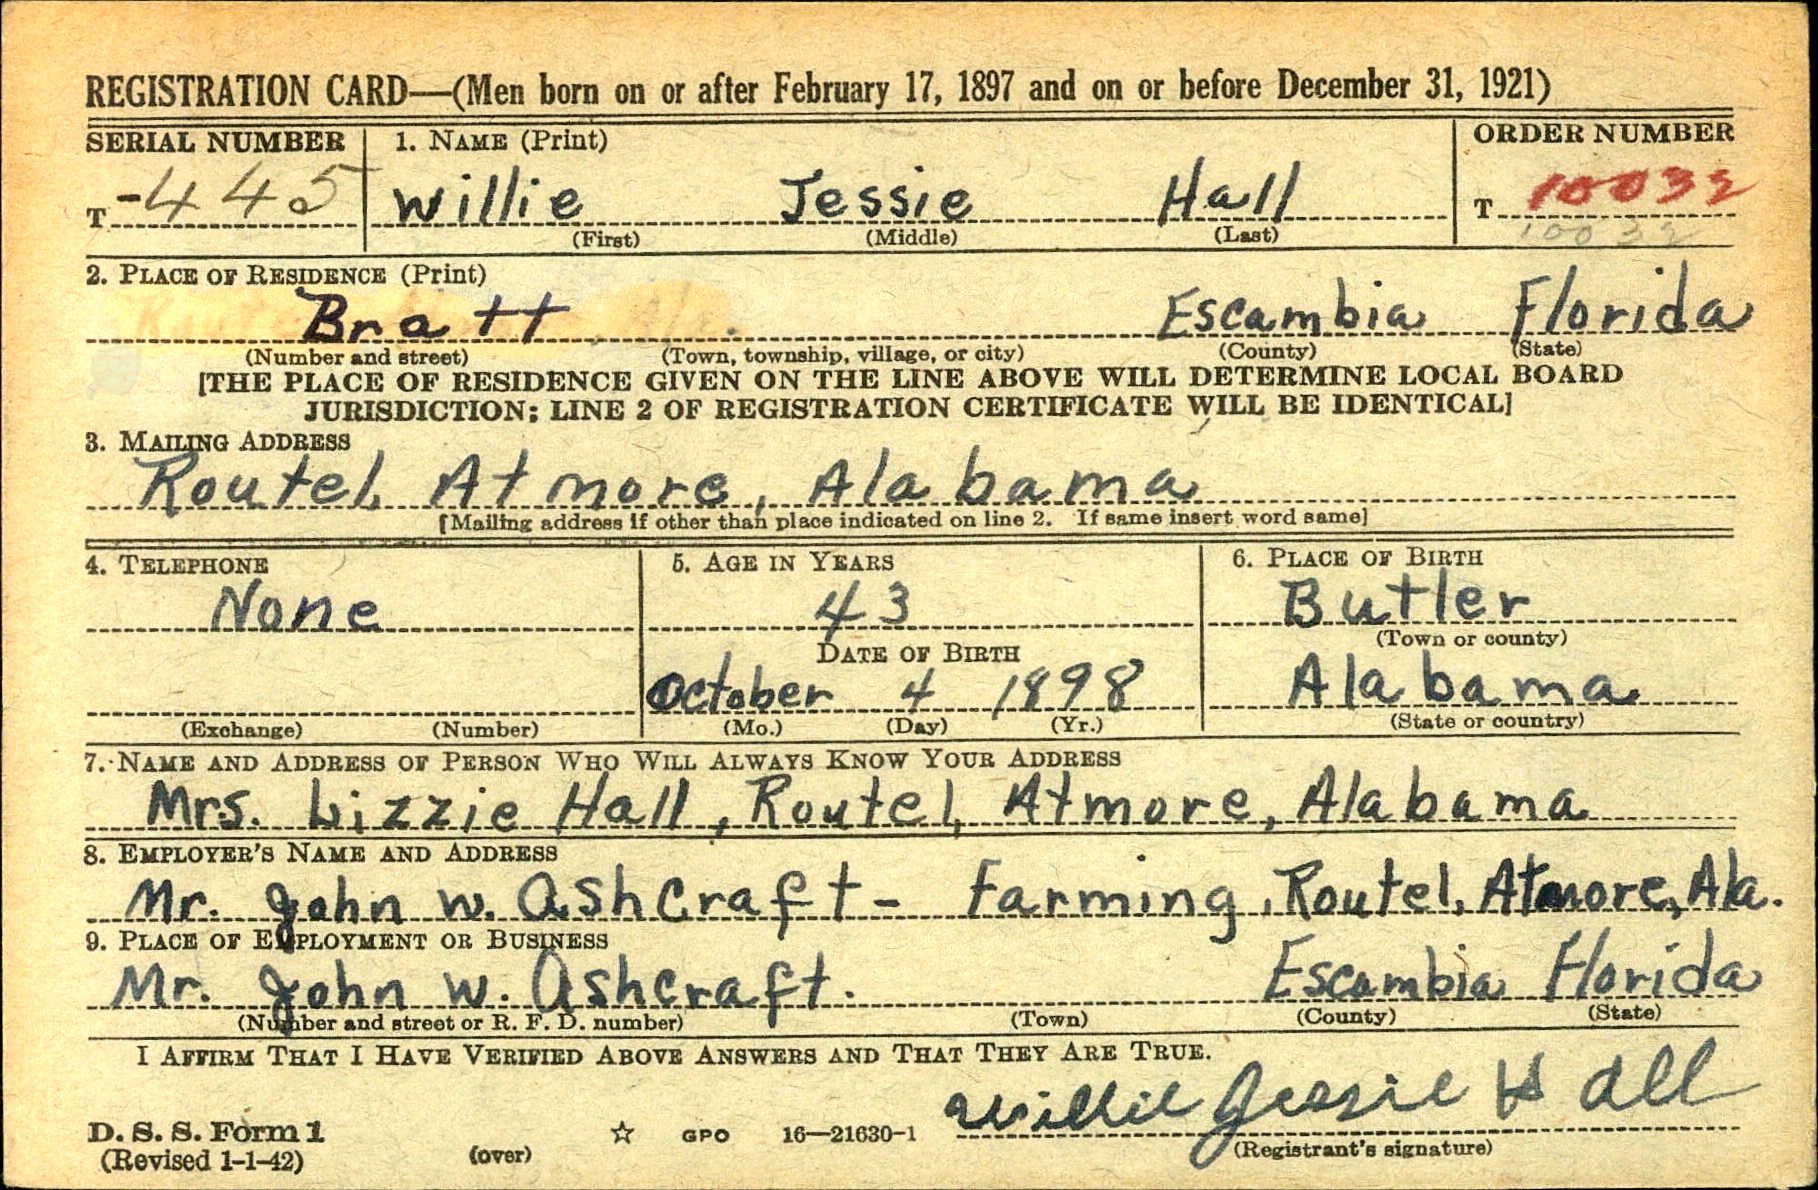 REGISTRATION CARD—(Men born on or after February 17, 1897 and on or before December 31, 1921)
SERIAL NUMBER 1. NAME (Print) ORDER NUMBER
T -445 Willie Jessie Hall T 10032
(First) (Middle) (Last) 10032
2. PLACE OF RESIDENCE (Print)
Bratt Escambia Florida
(Number and street) (Town, township, village, or city) (County) (State)
[THE PLACE OF RESIDENCE GIVEN ON THE LINE ABOVE WILL DETERMINE LOCAL BOARD
JURISDICTION; LINE 2 OF REGISTRATION CERTIFICATE WILL BE IDENTICAL]
3. MAILING ADDRESS
Route1, Atmore, Alabama
[Mailing address if other than place indicated on line 2. If same insert word same]
4. TELEPHONE 5. AGE IN YEARS 6. PLACE OF BIRTH
None 43 Butler
(Town or county)
DATE OF BIRTH
October 4 1898 Alabama
(Exchange) (Number) (Mo.) (Day) (Yr.) (State or country)
7. NAME AND ADDRESS OF PERSON WHO WILL ALWAYS KNOW YOUR ADDRESS
Mrs. Lizzie Hall, Route1, Atmore, Alabama
8. EMPLOYER'S NAME AND ADDRESS
Mr. John W. Ashcraft - Farming, Route1, Atmore, Ala.
9. PLACE OF EMPLOYMENT OR BUSINESS
Mr. John W. Ashcraft. Escambia Florida
(Number and street or R. F. D. number) (Town) (County) (State)
I AFFIRM THAT I HAVE VERIFIED ABOVE ANSWERS AND THAT THEY ARE TRUE.
Willie Jessie Hall
D. S. S. Form 1
(Revised 1-1-42) (over) ☆ GPO 16—21630-1 (Registrant's signature)